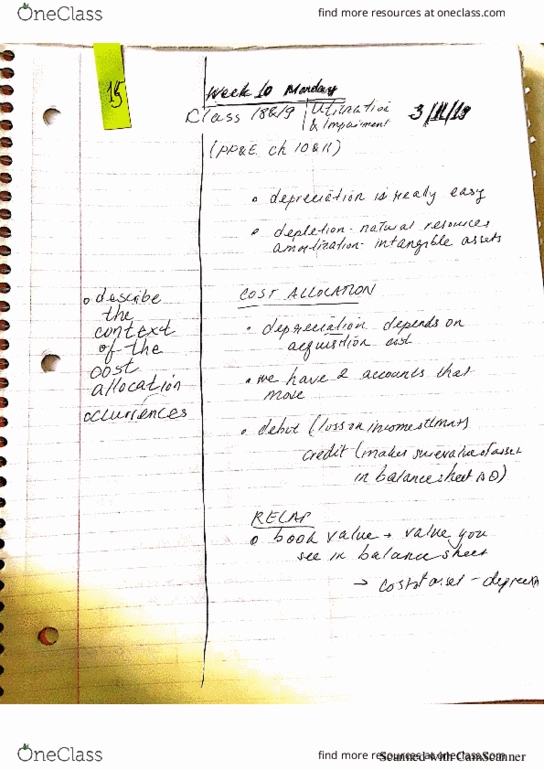 OneClass
find more resources at oneclass.com
15
Week 10 Monday
Class 18&19 | Utilization
& Impairment
3/11/19
(PP&E ch 10&11)
o depreciation is really easy
o depletion - natural resources
amortization - intangible assets
o describe
the
context
of the
cost
allocation
occurrences
COST ALLOCATION
• depreciation depends on
acquisition cost
• we have 2 accounts that
move
• debit (loss on income stmnt)
credit (makes sure value of asset
in balance sheet
RECAP
o book value → value you
see in balance sheet
→ cost of asset -
OneClass
find more resources at oneclass.com
Scanned with CamScanner